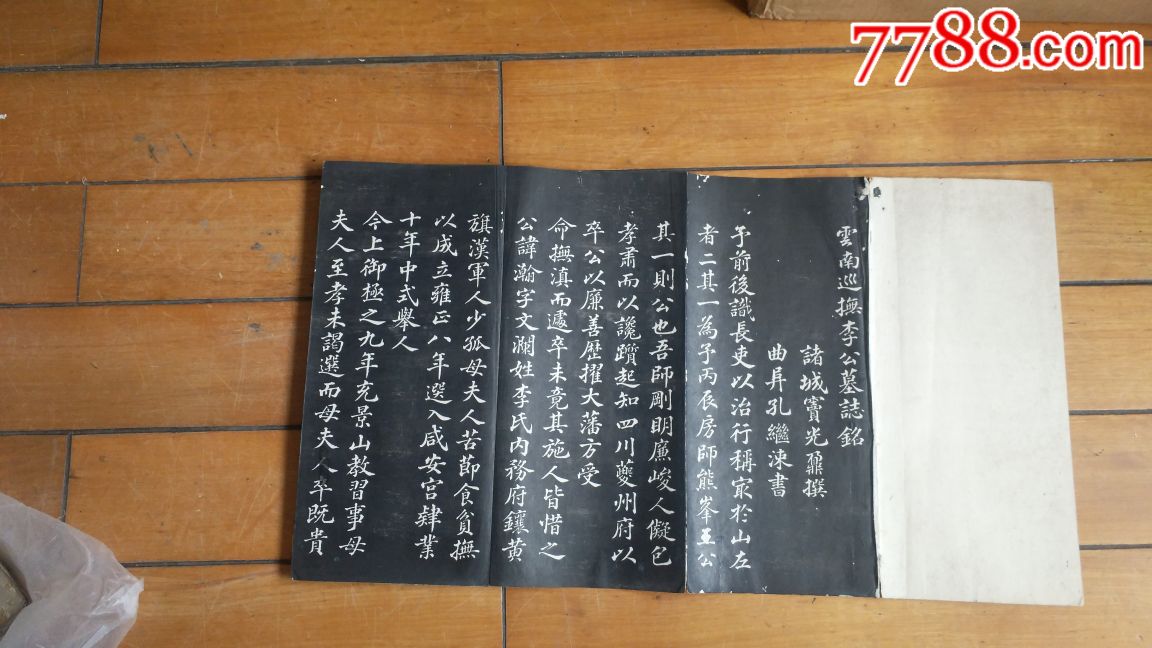 7788.com
雲南巡撫李公墓誌銘
諸城竇光鼐撰
曲阜孔繼涑書
予前後識長吏以治行稱冣於山左
者二其一為予丙辰房師熊峯王公
其一則公也吾師剛明廉峻人儗包
孝肅而以讒躓起知四川夔州府以
卒公以廉善歷擢大藩方受
命撫滇而遽卒未竟其施人皆惜之
公諱瀚字文瀾姓李氏内務府鑲黃
旗漢軍人少孤母夫人苦節食貧撫
以成立雍正八年選入咸安宮肄業
十年中式舉人
今上御極之九年充景山教習事母
夫人至孝未謁選而母夫人卒既貴